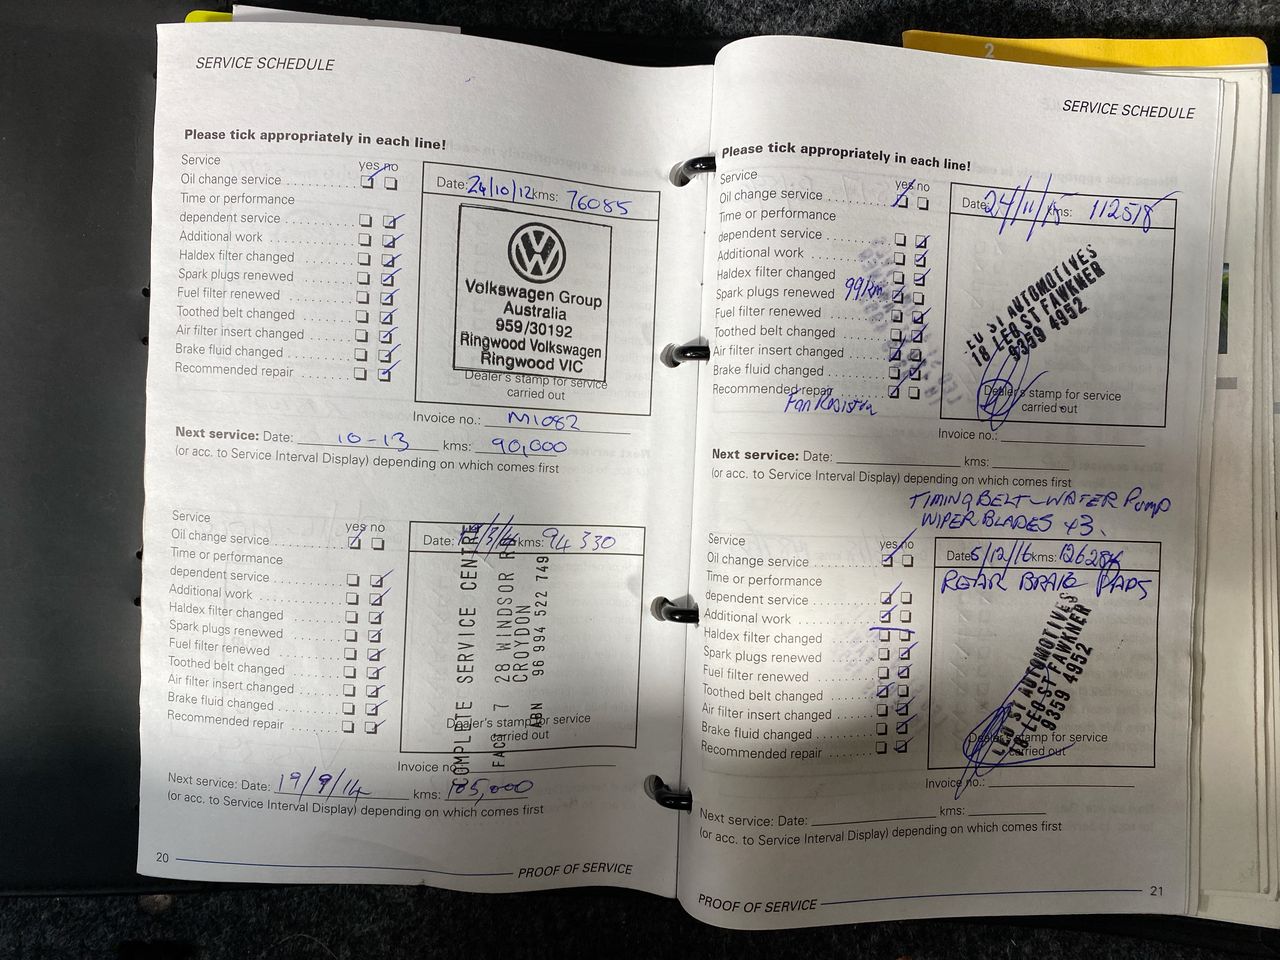 SERVICE SCHEDULE
Please tick appropriately in each line!
Service yes no
Oil change service
Time or performance
dependent service
Additional work
Haldex filter changed
Spark plugs renewed
Fuel filter renewed
Toothed belt changed
Air filter insert changed
Brake fluid changed
Recommended repair
Date: 24/10/12 kms: 76085
Volkswagen Group
Australia
959/30192
Ringwood Volkswagen
Ringwood VIC
Dealer's stamp for service
carried out
Invoice no.: M1082
Next service: Date: 10-13 kms: 90,000
(or acc. to Service Interval Display) depending on which comes first
Service yes no
Oil change service
Time or performance
dependent service
Additional work
Haldex filter changed
Spark plugs renewed
Fuel filter renewed
Toothed belt changed
Air filter insert changed
Brake fluid changed
Recommended repair
Date: kms: 94 330
COMPLETE SERVICE CENTRE
FACT 7 28 WINDSOR
CROYDON
ABN 96 994 522 749
Dealer's stamp for service
carried out
Invoice no
Next service: Date: 19/9/14 kms: 105,000
(or acc. to Service Interval Display) depending on which comes first
20 PROOF OF SERVICE
2
SERVICE SCHEDULE
Please tick appropriately in each line!
Service yes no
Oil change service
Time or performance
dependent service
Additional work
Haldex filter changed
Spark plugs renewed 99km
Fuel filter renewed
Toothed belt changed
Air filter insert changed
Brake fluid changed
Recommended repair
Fan Resistor
Date: 24/11/15 kms: 112518
LEO ST AUTOMOTIVES
18 LEO ST FAWKNER
9359 4952
Dealer's stamp for service
carried out
Invoice no.:
Next service: Date: kms:
(or acc. to Service Interval Display) depending on which comes first
TIMING BELT - WATER PUMP
WIPER BLADES x3.
Service yes no
Oil change service
Time or performance
dependent service
Additional work
Haldex filter changed
Spark plugs renewed
Fuel filter renewed
Toothed belt changed
Air filter insert changed
Brake fluid changed
Recommended repair
Date: 5/12/16 kms:
REAR BRAKE PADS
LEO ST AUTOMOTIVES
18 LEO ST FAWKNER
9359 4952
Dealer's stamp for service
carried out
Invoice no.:
Next service: Date: kms:
(or acc. to Service Interval Display) depending on which comes first
PROOF OF SERVICE 21